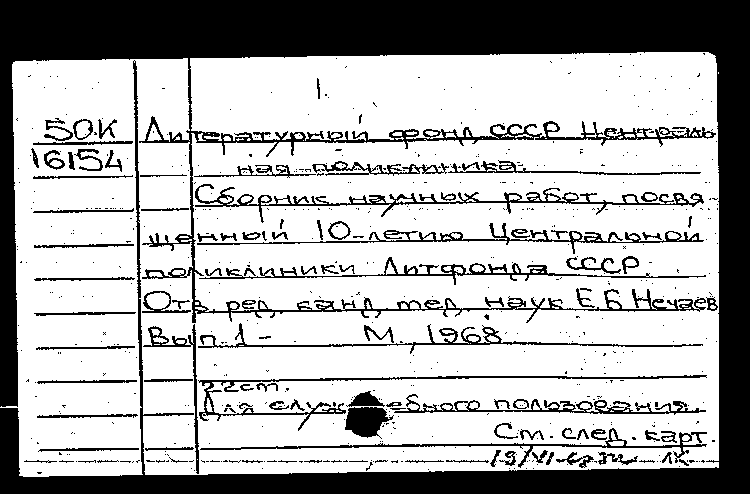 1.
50К Литературный фонд СССР Централь-
16154 ная поликлиника.
Сборник научных работ, посвя-
щенный 10-летию Центральной
поликлиники Литфонда СССР.
Отв. ред. канд. мед. наук Е.Б Нечаев
Вып. 1 - М., 1968
22 см.
Для служебного пользования.
См. след. карт.